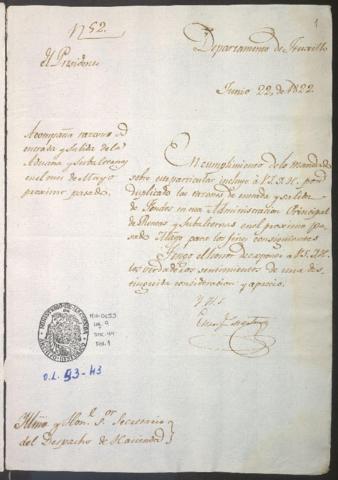 1752.
1
Departamento de Truxillo
El Presidente
Junio 22, de 1822.
Acompaña razones de
entrada y salida de la
Aduana y Subalternas
en el mes de Mayo
proximo pasado.
En cumplimiento de lo mandado
sobre este particular incluyo á V.S.I.H. por
duplicado las razones de entrada y salida
de fondos en esta Administracion Principal
de Rentas y Subalternas en el proximo pa-
sado Mayo para los fines consiguientes
Tengo el honor de exponer á V.S.I.H.
los verdaderos sentimientos de una dis-
tinguida consideracion y aprecio.
O.L. 93-43
Iltmo y Hon.l S.or Secretario
del Despacho de Hacienda